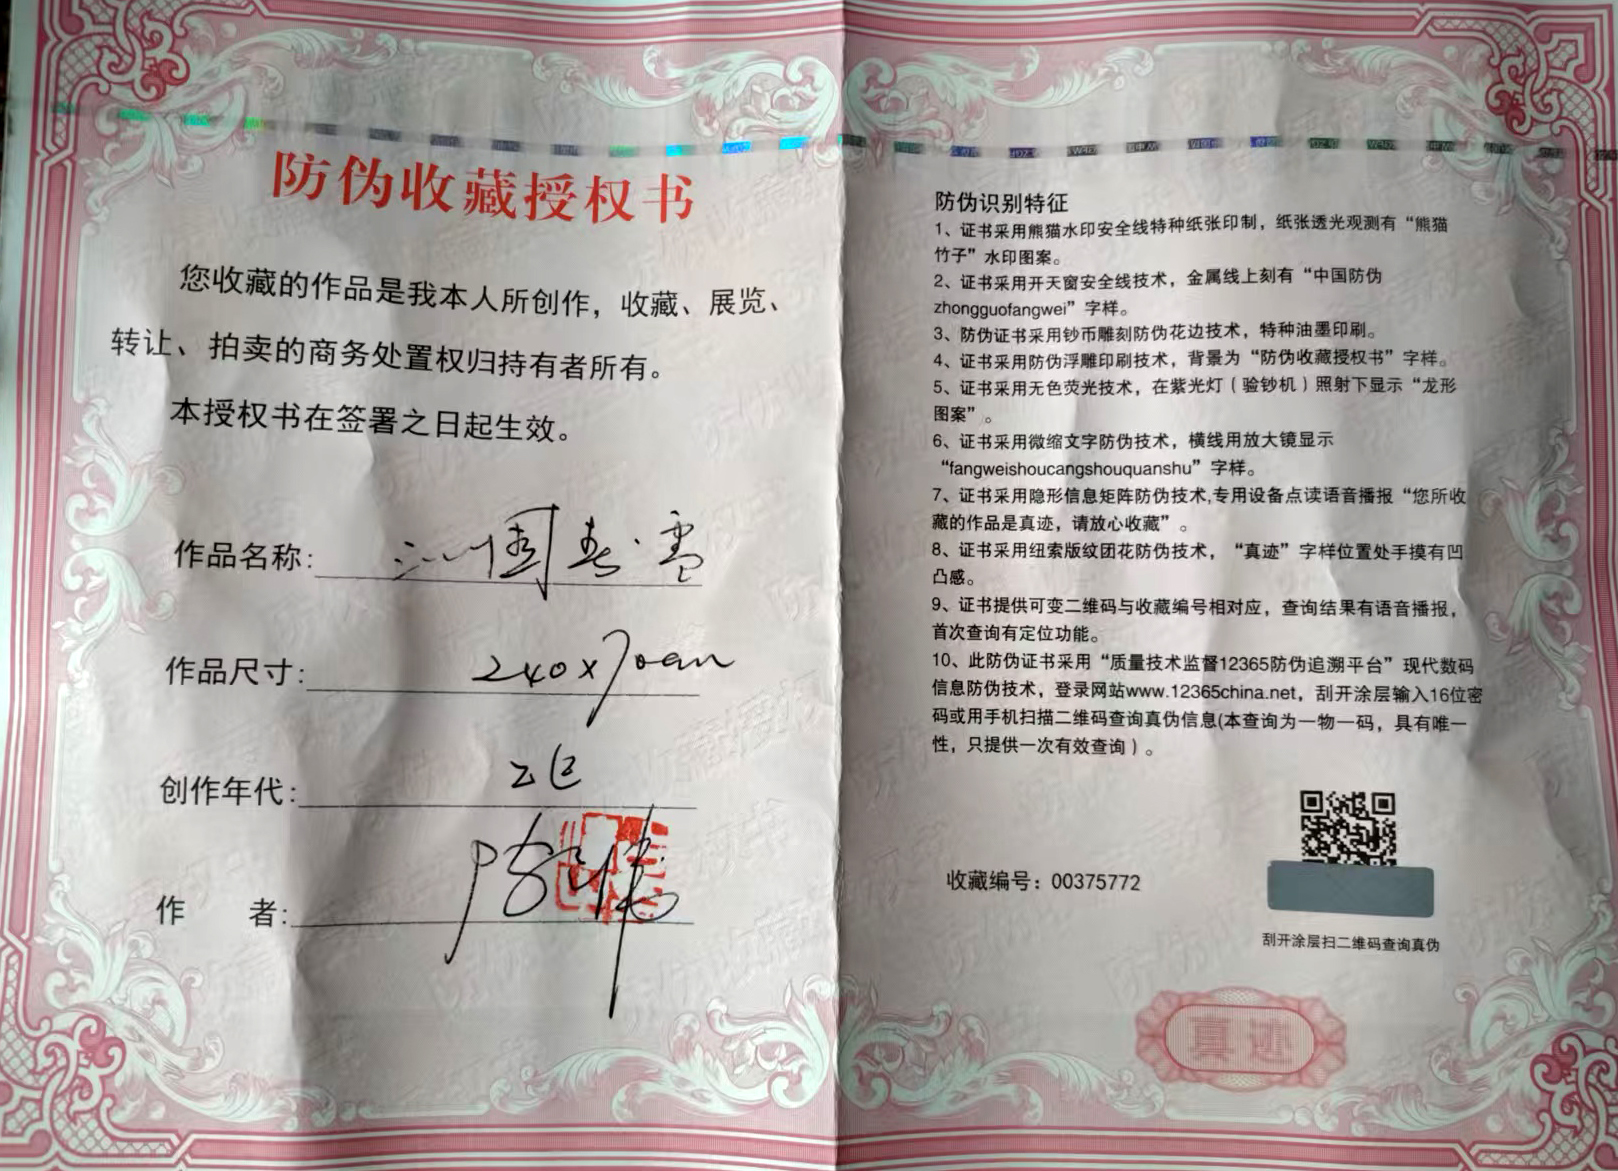 防伪收藏授权书
您收藏的作品是我本人所创作，收藏、展览、
转让、拍卖的商务处置权归持有者所有。
本授权书在签署之日起生效。
作品名称：沁园春·雪
作品尺寸：240x70cm
创作年代：乙巳
作 者：
防伪识别特征
1、证书采用熊猫水印安全线特种纸张印制，纸张透光观测有“熊猫
竹子”水印图案。
2、证书采用开天窗安全线技术，金属线上刻有“中国防伪
zhongguofangwei”字样。
3、防伪证书采用钞币雕刻防伪花边技术，特种油墨印刷。
4、证书采用防伪浮雕印刷技术，背景为“防伪收藏授权书”字样。
5、证书采用无色荧光技术，在紫光灯（验钞机）照射下显示“龙形
图案”。
6、证书采用微缩文字防伪技术，横线用放大镜显示
“fangweishoucangshouquanshu”字样。
7、证书采用隐形信息矩阵防伪技术,专用设备点读语音播报“您所收
藏的作品是真迹，请放心收藏”。
8、证书采用纽索版纹团花防伪技术，“真迹”字样位置处手摸有凹
凸感。
9、证书提供可变二维码与收藏编号相对应，查询结果有语音播报，
首次查询有定位功能。
10、此防伪证书采用“质量技术监督12365防伪追溯平台”现代数码
信息防伪技术，登录网站www.12365china.net，刮开涂层输入16位密
码或用手机扫描二维码查询真伪信息(本查询为一物一码，具有唯一
性，只提供一次有效查询）。
收藏编号：00375772
刮开涂层扫二维码查询真伪
真迹